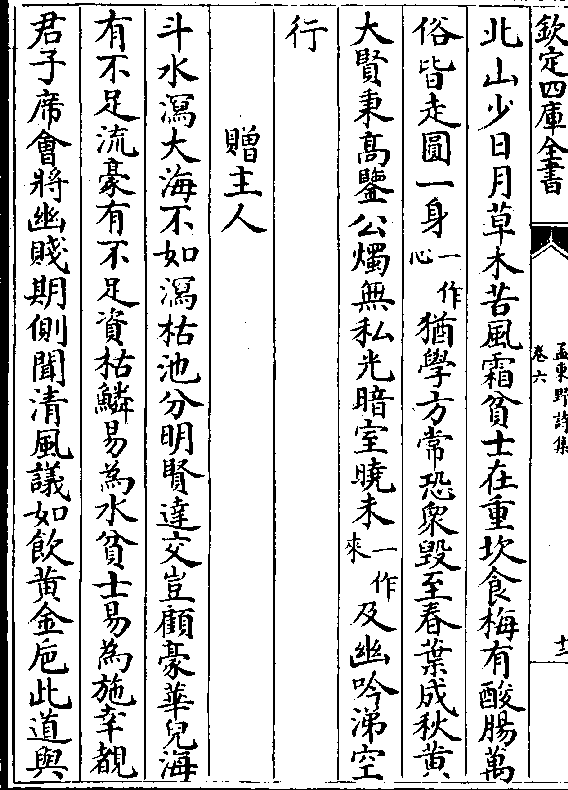 欽定四庫全書
孟東野詩集
卷六
十二
北山少日月草木苦風霜貧士在重坎食梅有酸腸萬
俗皆走圓一身一作心猶學方常恐衆毀至春葉成秋黄
大賢秉高鑒公燭無私光暗室曉未一作來及幽吟涕空
行
贈主人
斗水瀉大海不如瀉枯池分明賢達交豈顧豪華兒海
有不足流豪有不足資枯鱗易為水貧士易為施幸覩
君子席會將幽賤期側聞清風議如飲黄金巵此道與